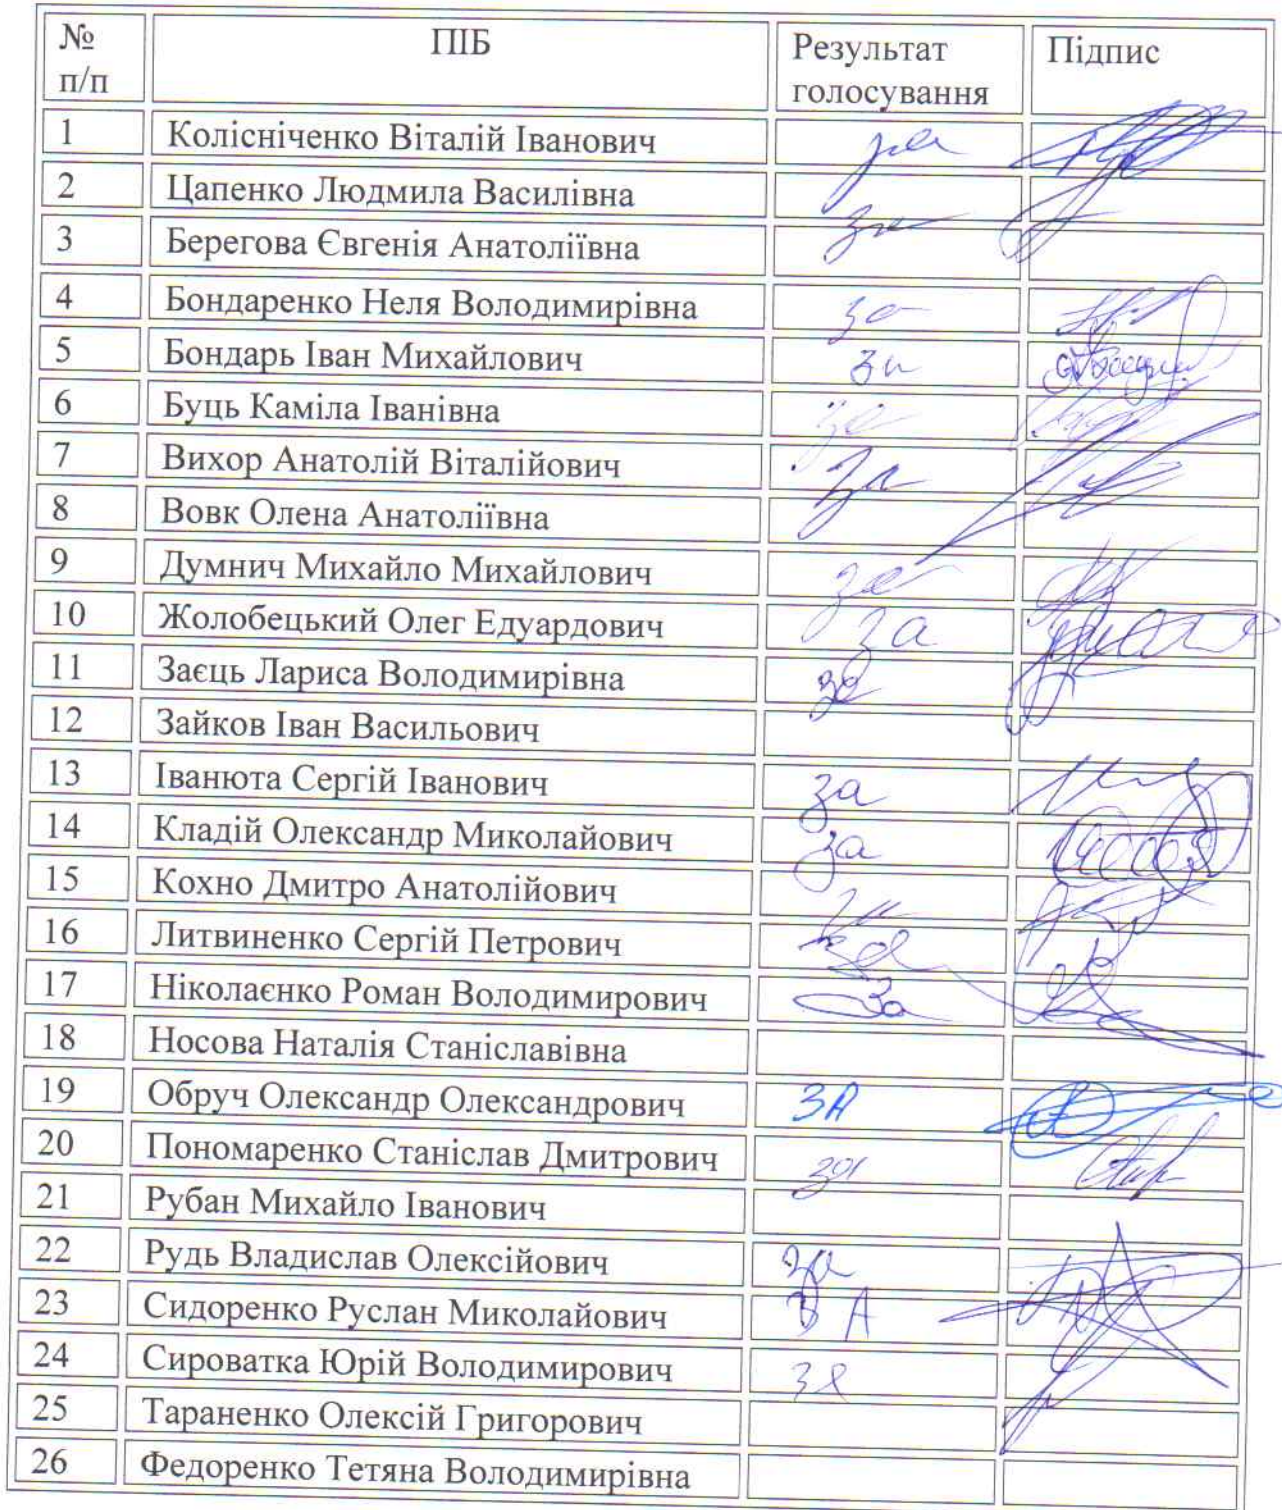 № ПІБ Результат Підпис
п/п голосування
1 Колісніченко Віталій Іванович за
2 Цапенко Людмила Василівна за
3 Берегова Євгенія Анатоліївна
4 Бондаренко Неля Володимирівна за
5 Бондарь Іван Михайлович за
6 Буць Каміла Іванівна за
7 Вихор Анатолій Віталійович за
8 Вовк Олена Анатоліївна
9 Думнич Михайло Михайлович за
10 Жолобецький Олег Едуардович за
11 Заєць Лариса Володимирівна за
12 Зайков Іван Васильович
13 Іванюта Сергій Іванович за
14 Кладій Олександр Миколайович за
15 Кохно Дмитро Анатолійович за
16 Литвиненко Сергій Петрович за
17 Ніколаєнко Роман Володимирович За
18 Носова Наталія Станіславівна
19 Обруч Олександр Олександрович ЗА
20 Пономаренко Станіслав Дмитрович за
21 Рубан Михайло Іванович
22 Рудь Владислав Олексійович за
23 Сидоренко Руслан Миколайович ЗА
24 Сироватка Юрій Володимирович за
25 Тараненко Олексій Григорович
26 Федоренко Тетяна Володимирівна